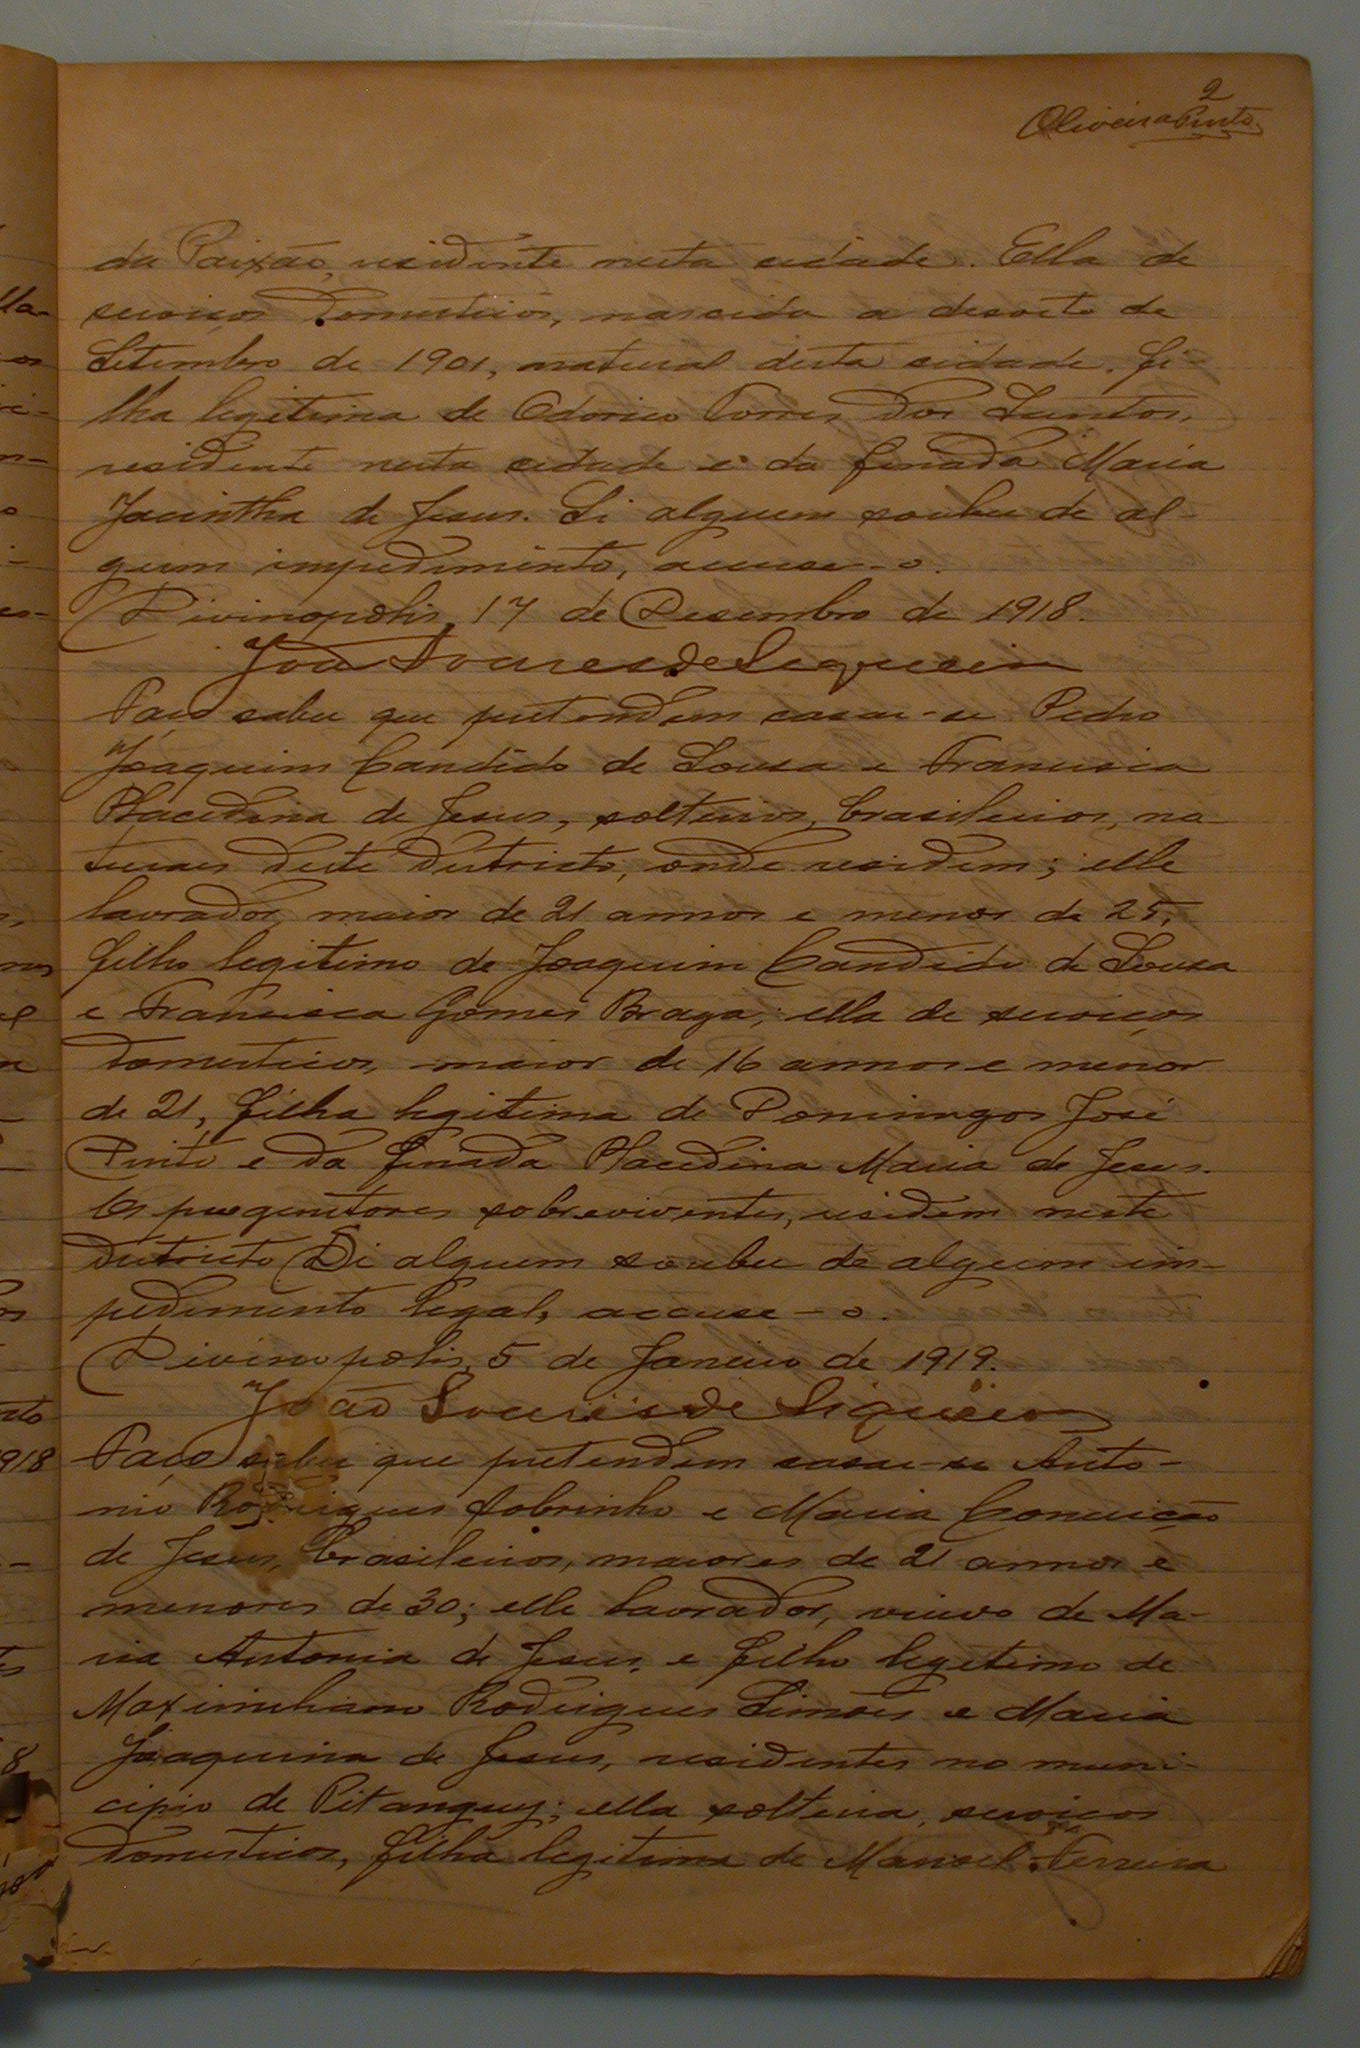 2
Oliveira Pinto
da Paixão, residente nesta cidade. Ella de
serviços domesticos, nascida a desoito de
Setembro de 1901, natural desta cidade, fi-
lha legitima de Odorico Torres dos Santos,
residente nesta cidade e da finada Maria
Jacintha de Jesus. Si alguem souber de al-
gum impedimento, accuse-o.
Divinopolis, 17 de Desembro de 1918.
João Soares de Siqueira
Faço saber que pretendem casar-se Pedro
Joaquim Candido de Sousa e Francisca
Placedina de Jesus, solteiros, brasileiros, na
turaes deste districto, onde residem; elle
lavrador, maior de 21 annos e menor de 25,
filho legitimo de Joaquim Candido de Sousa
e Francisca Gomes Braga; ella de serviços
domesticos, maior de 16 annos e menor
de 21, filha legitima de Domingos José
Pinto e da finada Placedina Maria de Jesus.
Os progenitores sobreviventes, residem neste
districto. Si alguem souber de algum im-
pedimento legal, accuse-o.
Divinopolis, 5 de Janeiro de 1919.
João Soares de Siqueira
Faço saber que pretendem casar-se Anto-
nio Rodrigues Sobrinho e Maria Conceição
de Jesus, brasileiros, maiores de 21 annos e
menores de 30; elle lavrador, viuvo de Ma-
ria Antonia de Jesus, e filho legitimo de
Maximiliano Rodrigues Simões e Maria
Joaquina de Jesus, residentes no muni-
cipio de Pitanguy; ella solteira, serviços
domesticos, filha legitima de Manoel Ferreira